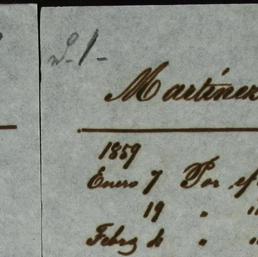 N. 1-
Martinez
1859
Enero 7 Por ef
19 " "
Febro " "